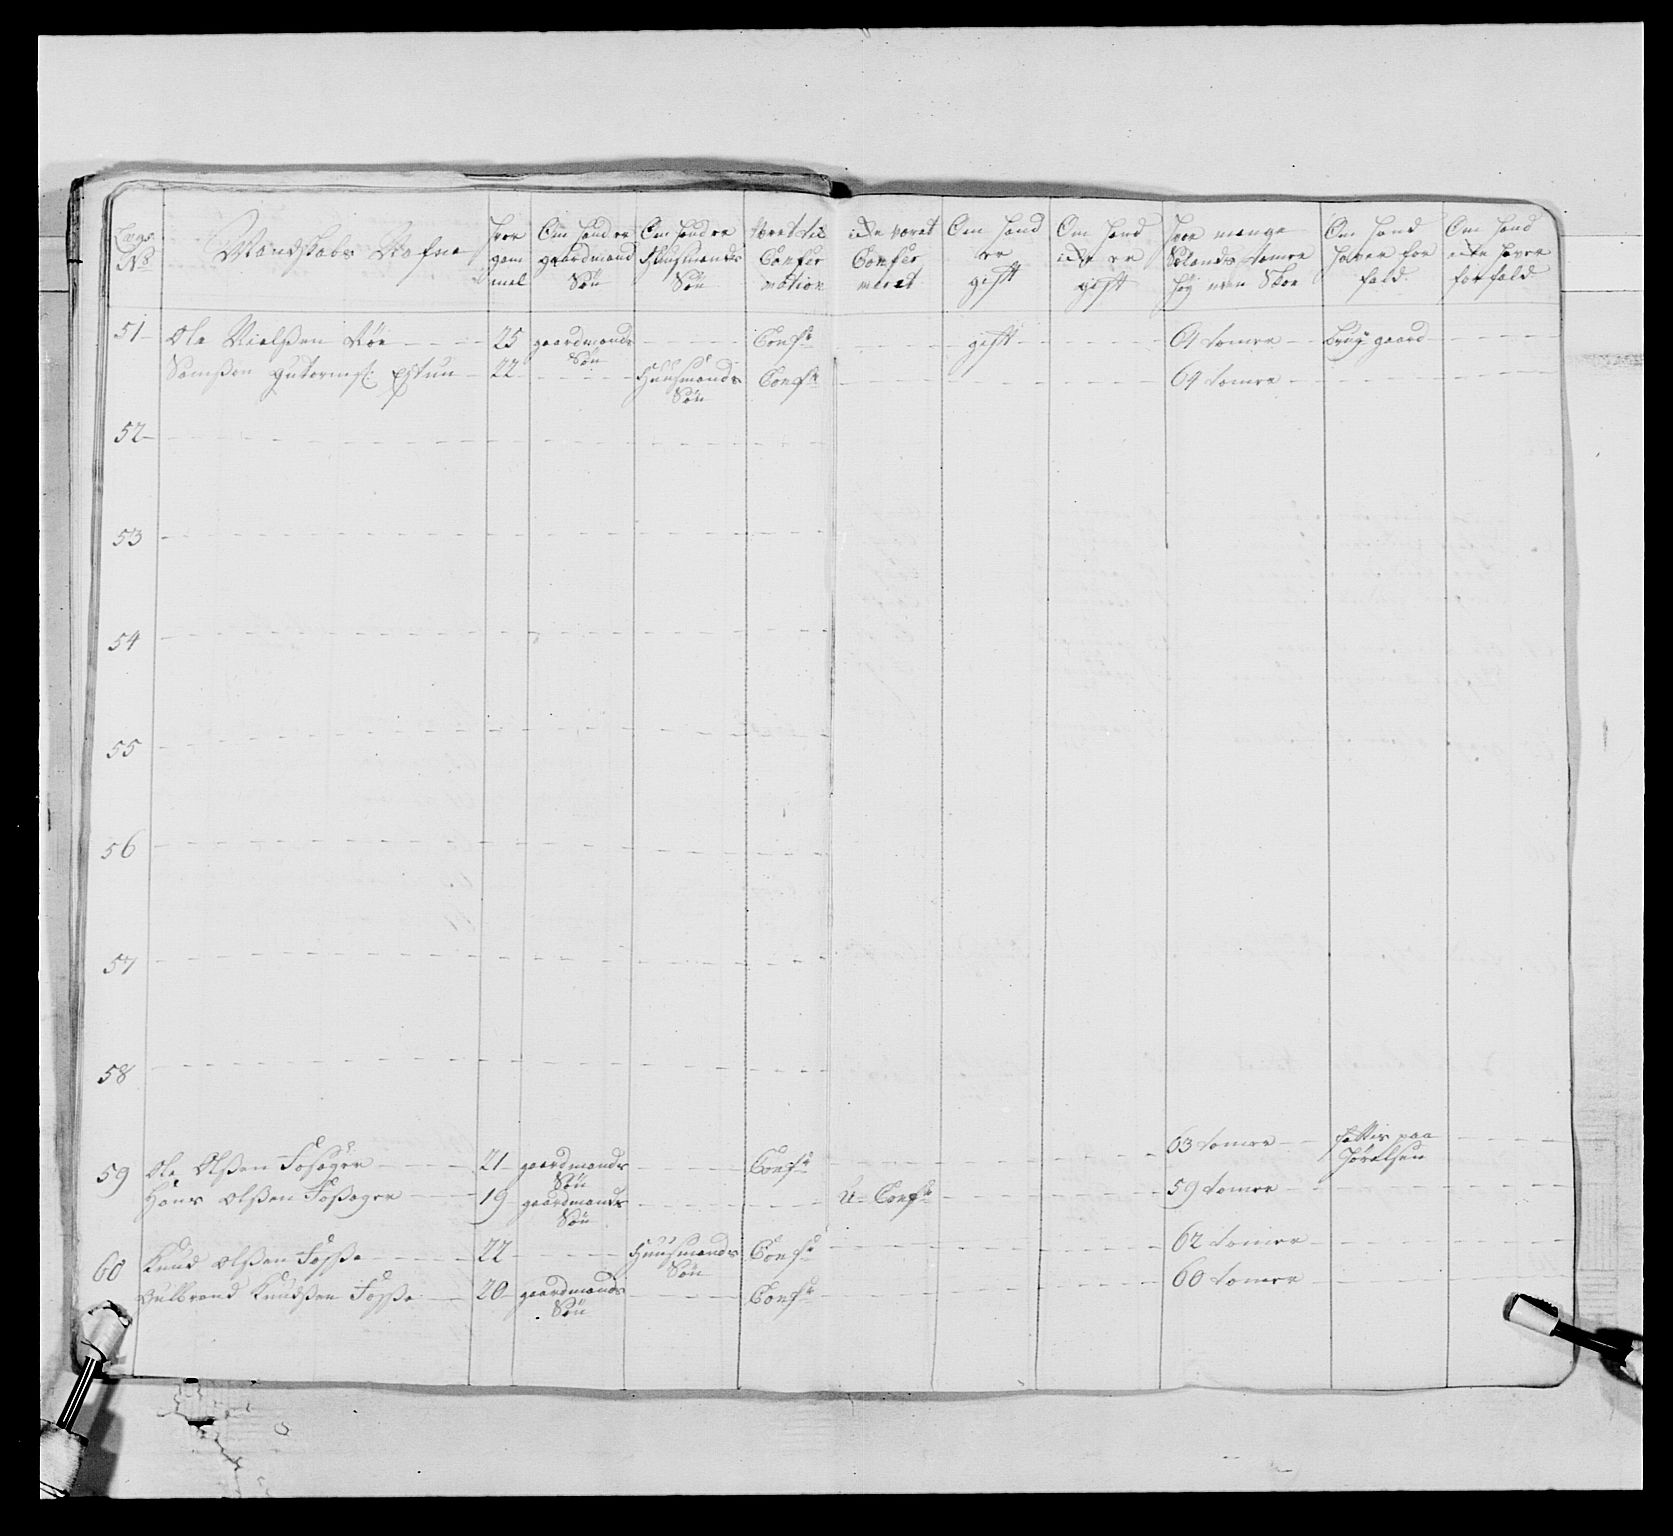 Lægs No | Mandskabs Nafne | Hvor gam mel | Om hand er gaardmand Søn | Om hand er Huusmands Søn | Været til Confir mation | icke været Confir meret | Om hand er gift | Om hand icke er gift | Hvor mange Selands tomer høy uden Skoe | Om hand haver for fald | Om hand icke haver forfald
51 | Ole Nielssen Røe | 25 | gaardmands Søn | | Confr | | gift | | 61 tomer | brug gaard
Samssen gutormss: Estun | 22 | | Huusmands Søn | Confr | | | | 64 tomer
52
53
54
55
56
57
58
59 | Ole Olssen Fosager | 21 | gaardmands Søn | | Confr | | | | 63 tomer | paa
Hans Olssen Fossager | 19 | gaardmands Søn | | | U Confr | | | 59 tomer
60 | Knud Olssen Fosse | 22 | | Huusmands Søn | Confr | | | | 62 tomer
Gulbrand Knudssen Fosse | 20 | gaardmands Søn | | Confr | | | | 60 tomer